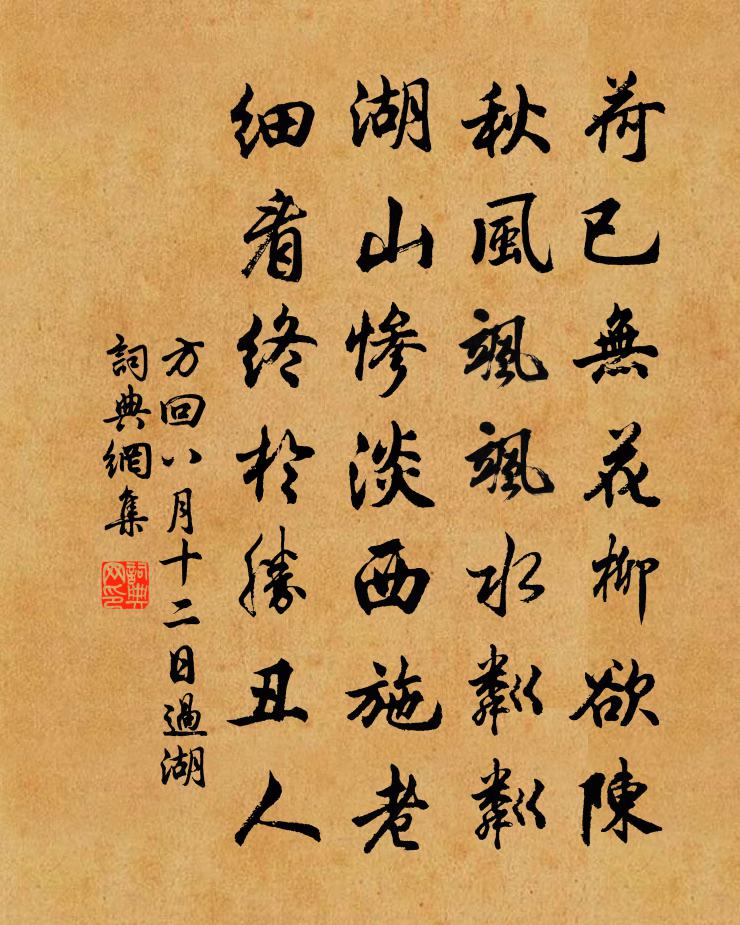 荷已無花柳欲陳
秋風颯颯水粼粼
湖山惨淡西施老
细看终於勝丑人
方回八月十二日過湖
詞典網集
詞典网印